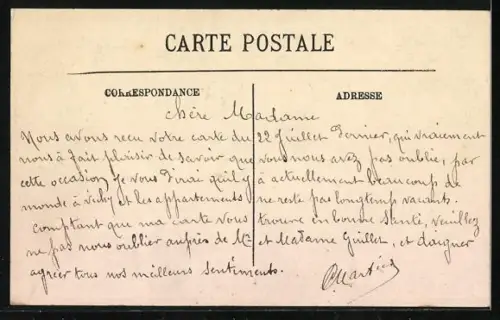 CARTE POSTALE
CORRESPONDANCE
ADRESSE
chère Madame
Nous avons recu votre carte du 22 Juillet Dernier, qui vraiement
nous à fait plaisir de savoir que vous nous avez pas oublié, par
cette occasion Je vous Dirai qu'il y à actuellement beaucoup de
monde à Vichy et les appartements ne reste pas longtemps vacants.
comptant que ma carte vous trouve en bonne Santé, veuillez
ne pas nous oublier auprès de Mr et Madame Guillet, et daigner
agréer tous nos meilleurs Sentiments.